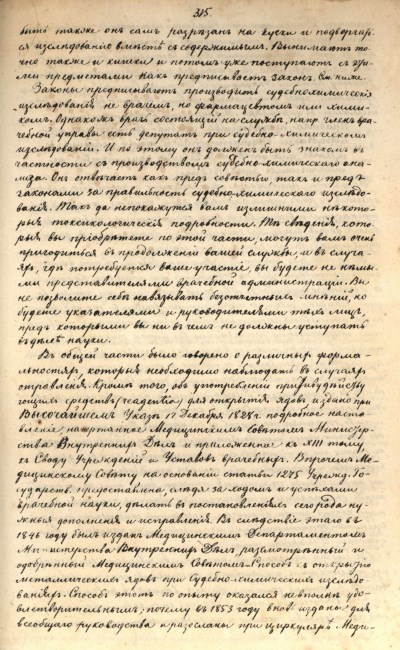 315.
быть также онъ самъ разрѣзанъ на куски и подвергает
ся изслѣдованію вмѣстѣ съ содержимымъ. Вынимаютъ то
чно также и кишки и потомъ уже поступаютъ съ эти
ми предметами какъ предписываетъ законъ. См. ниже.
Законы предписываютъ производить судебно-химическія
изслѣдованія не врачемъ, но фармацевтомъ или хими
комъ. Однакожъ врачъ состоящій на службѣ, напр. членъ вра
чебной управы есть депутатъ при судебно-химическомъ
изслѣдованіи. И по этому онъ долженъ быть знакомъ въ
частности съ производствомъ судебно-химическаго ана
лиза. Онъ отвѣчаетъ какъ предъ совѣстью такъ и предъ
законами за правильность судебно-химическаго изслѣдо
ванія. Такъ да непокажутся вамъ излишними нѣкото
рыя токсикологическія подробности. Тѣ свѣденія, кото
рыя вы пріобрѣтете по этой части, могутъ вамъ очень
пригодиться въ продолженіи вашей службы, и въ случа
яхъ, гдѣ потребуется ваше участіе, вы будете не нѣмы
ми представителями врачебной администраціи. Вы
не позволите себѣ навязывать безотчетныхъ мнѣній, но
будете указателями и руководителями тѣхъ лицъ,
предъ которыми вы ни въ чемъ не должны уступать
въ дѣлѣ науки.
Въ общей части было говорено о различныхъ форма
льностяхъ, которыя необходимо наблюдать въ случаяхъ
отравленія. Кромѣ того, объ употребленіи противудѣйству
ющихъ средствъ (реагентіа) для открытія ядовъ издано при
Высочайшемъ Указѣ 17 Декабря 1828 г. подробное наста
вленіе начертанное Медицинскимъ Совѣтомъ Министер
ства Внутреннихъ Дѣлъ и приложенное къ XIII тому,
къ Своду Учрежденій и Уставовъ врачебныхъ. Впрочемъ Ме
дицинскому Совѣту на основаніи статьи 1275 Учрежд. Го
сударств. предоставлено, слѣдя за ходомъ и успѣхами
врачебной науки, дѣлать въ постановленіяхъ сего рода ну
жныя дополненія и исправленія. Въ слѣдствіе этаго въ
1846 году былъ изданъ Медицинскимъ Департаментомъ
Министерства Внутреннихъ Дѣлъ разсмотрѣнный и
одобренный Медицинскимъ Совѣтомъ Способъ къ открытію
металлическихъ ядовъ при Судебно-химическихъ изслѣдо
ваніяхъ. Способъ этотъ по опыту оказался невполнѣ удо
влетворительнымъ; почему въ 1853 году вновь изданы для
всеобщаго руководства и разосланы при циркулярѣ Меди-